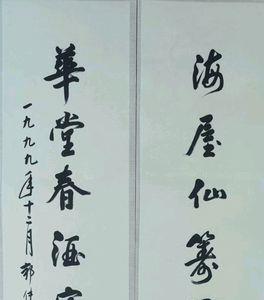 海屋仙籌
華堂春酒
一九九九年十二月郭